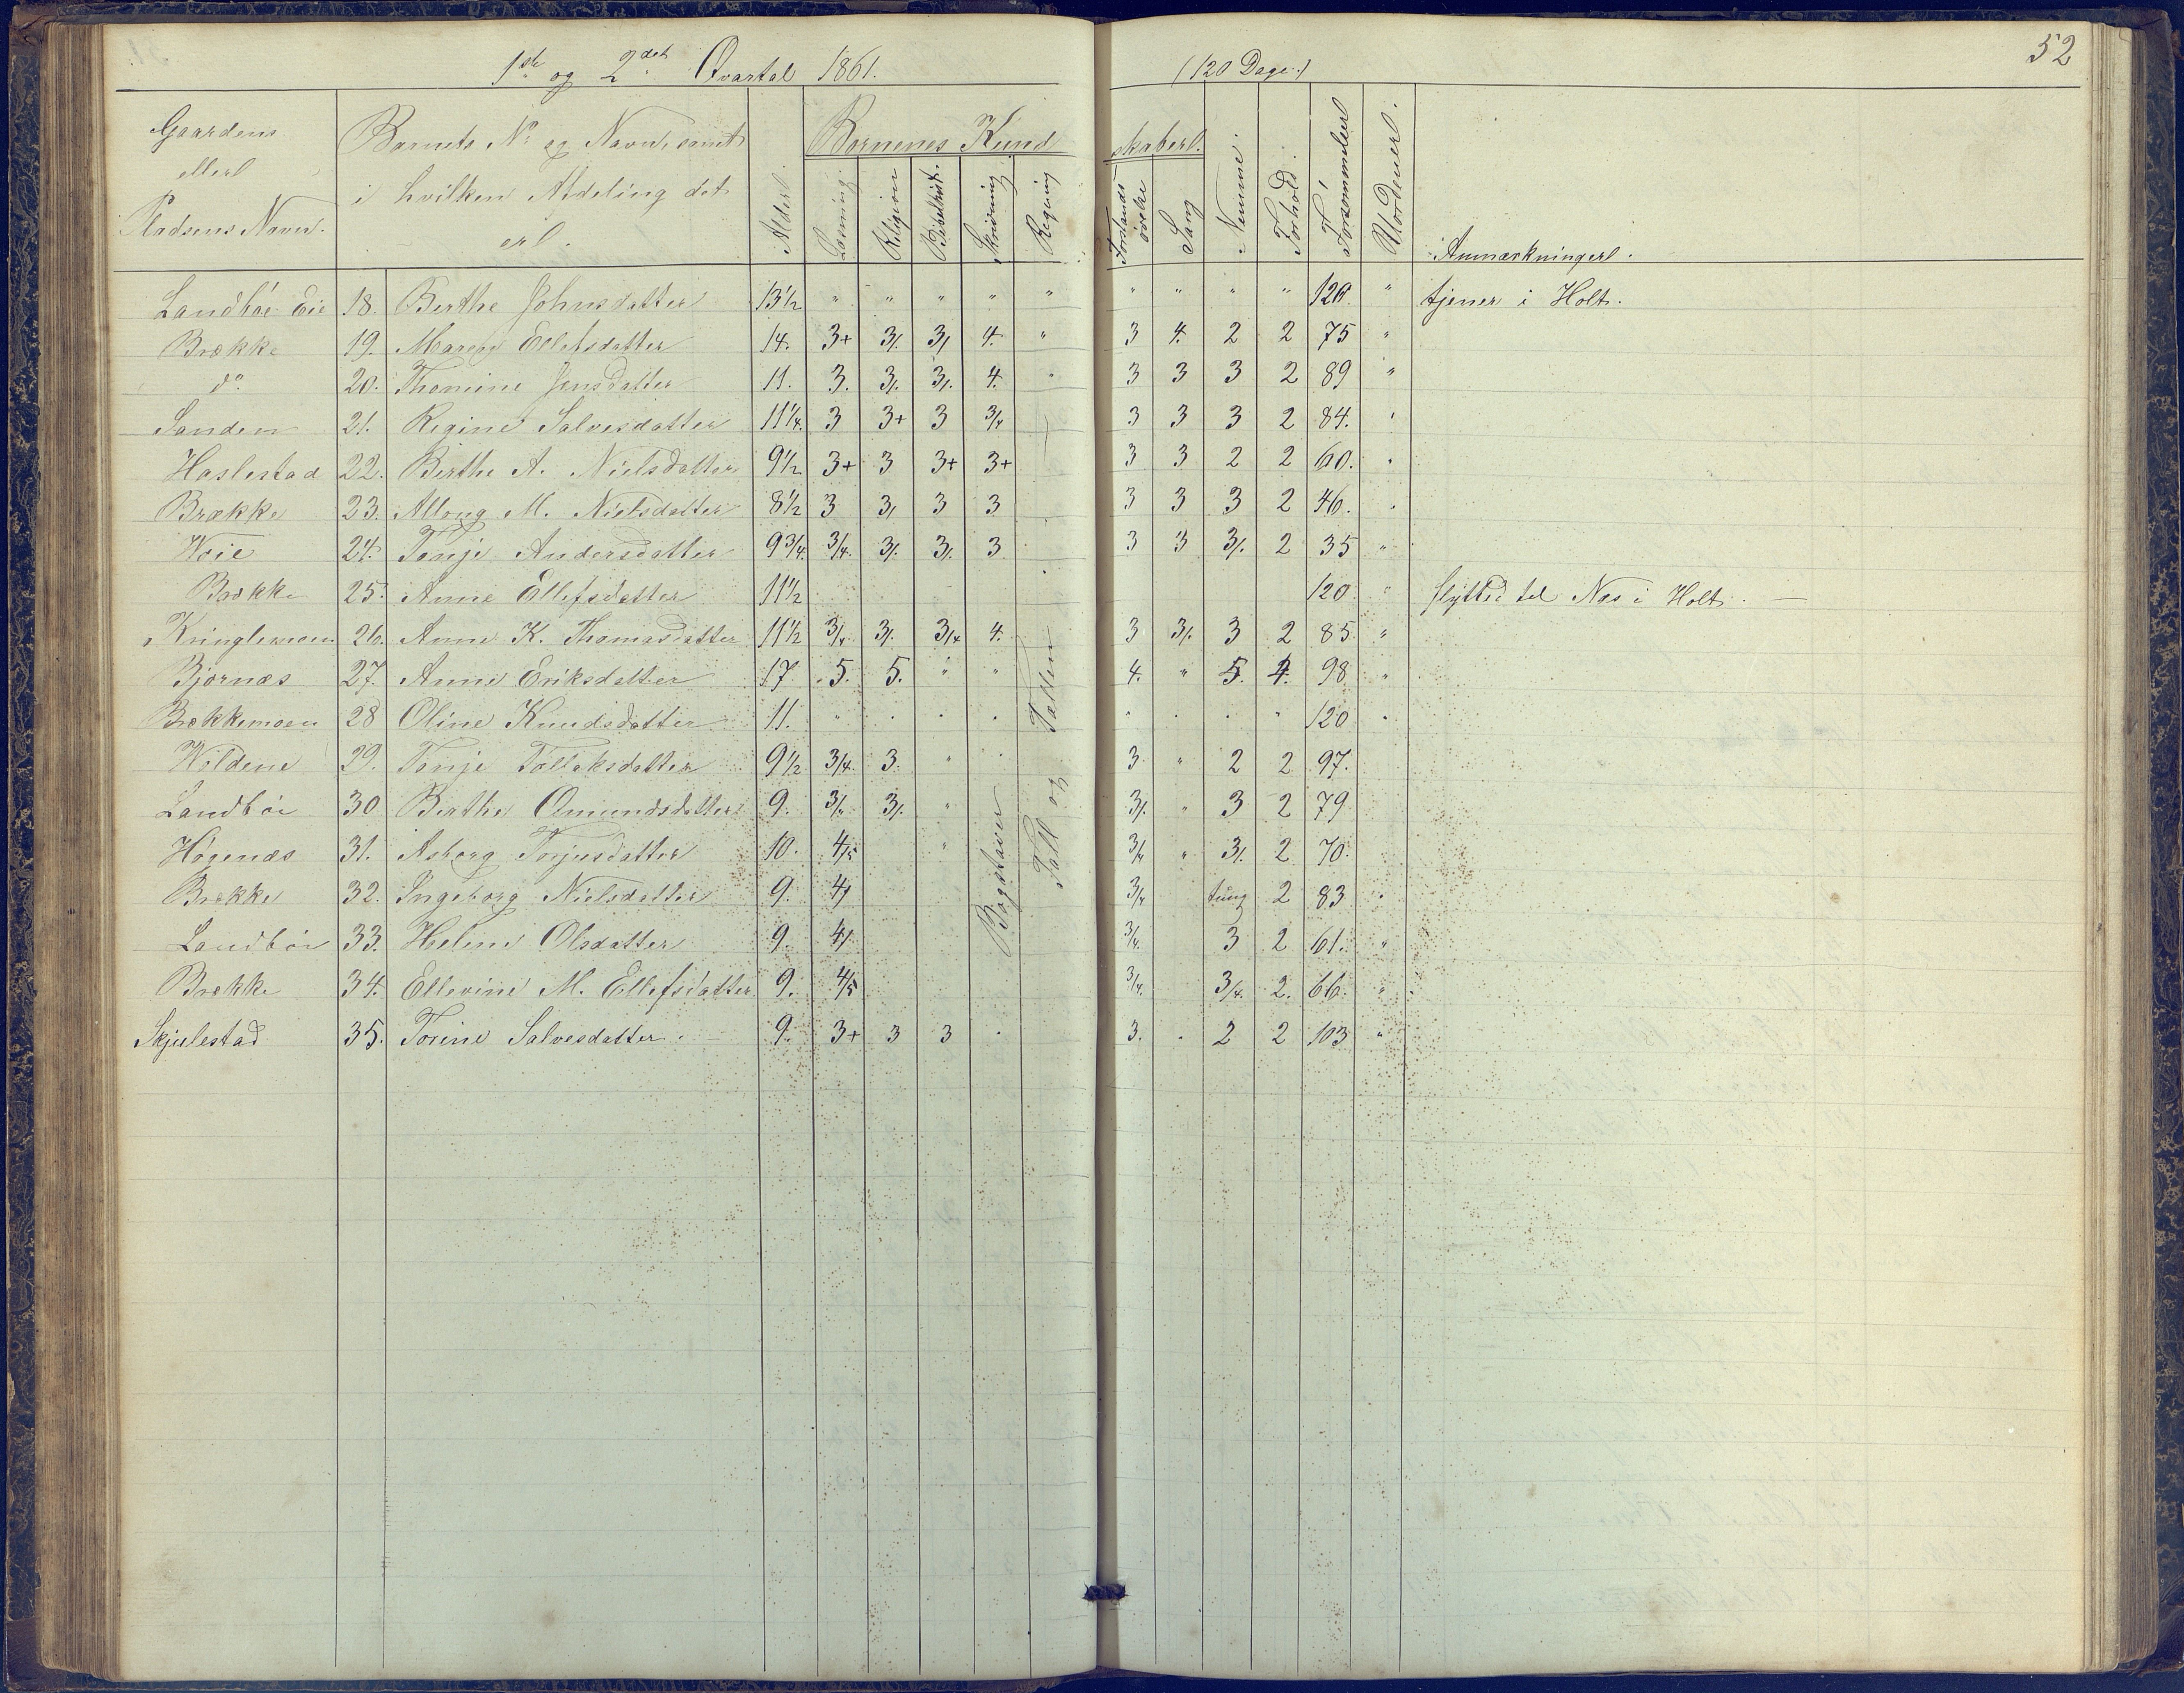 1ste og 2det Qvartal 1861. (120 Dage.) 52
Gaardens eller Pladsens Navn. Barnets No og Navn, samt i hvilken Afdeling det er. Alder. Børnenes Kundskaber. Læsning. Religion Bibelhist. Skrivning Regning Forstandsøvelse Sang Nemme. Forhold. Forsømmelser Uordener. Anmærkninger.
Landbøe Eie 18. Berthe Johnsdatter 13½ " " " " " " " " " 120. " tjener i Holt.
Brække 19. Maren Ellefsdatter 14. 3+ 3/. 3/ 4. " 3 4. 2 2 75 "
do. 20. Thomine Jensdatter 11. 3. 3/. 3/. 4. " 3 3 3 2 89 "
Sanden 21. Regine Salvesdatter 11¼. 3 3+ 3 3/4 3 3 3 2 84.
Haslestad 22. Berthe A. Nielsdatter 9½ 3+ 3 3+ 3+ 3 3 2 2 60.
Brække 23. M. Nielsdatter 8½ 3 3/ 3 3 3 3 3 2 46.
24. Tonje Andersdatter 9¾. 3/4. 3/. 3/. 3 3 3 3/. 2 35 "
Brække 25. Anne Ellefsdatter 11½ 120 " flyttet til Næs i Holt. —
Kringlemoen 26. Anne K. Thomasdatter 11½ 3/4 3/. 3/4 4. 3 3/. 3 2 85 "
Bjørnæs 27. Anne Eriksdatter 17. 5. 5. " " 4. " 5. 4. 98 "
Brækkemoen 28 Oline Knudsdatter 11. " . . . . . . " 120 .
29. Tonje Tollaksdatter 9½ 3/4. 3. " 3 " 2 2 97.
Landbøe 30 Berthe Omundsdatter 9. 3/4 3/. " 3/. " 3 2 79
Høgenæs 31. Asborg Torjusdatter 10. 4/5 " 3/4 " 3/. 2 70.
Brække 32. Ingeborg Nielsdatter 9. 4/ 3/4 tung 2 83 .
Landbøe 33. Helene Olsdatter 9. 4/ 3/4. 3 2 61. "
Brække 34. Ellevine M. Ellefsdatter 9. 4/5 3/4. 3/4. 2. 66. "
Skjulestad 35. Torine Salvesdatter. 9. 3+ 3 3 . 3. . 2 2 103 "
Bogstaver
Tall og Tabellen